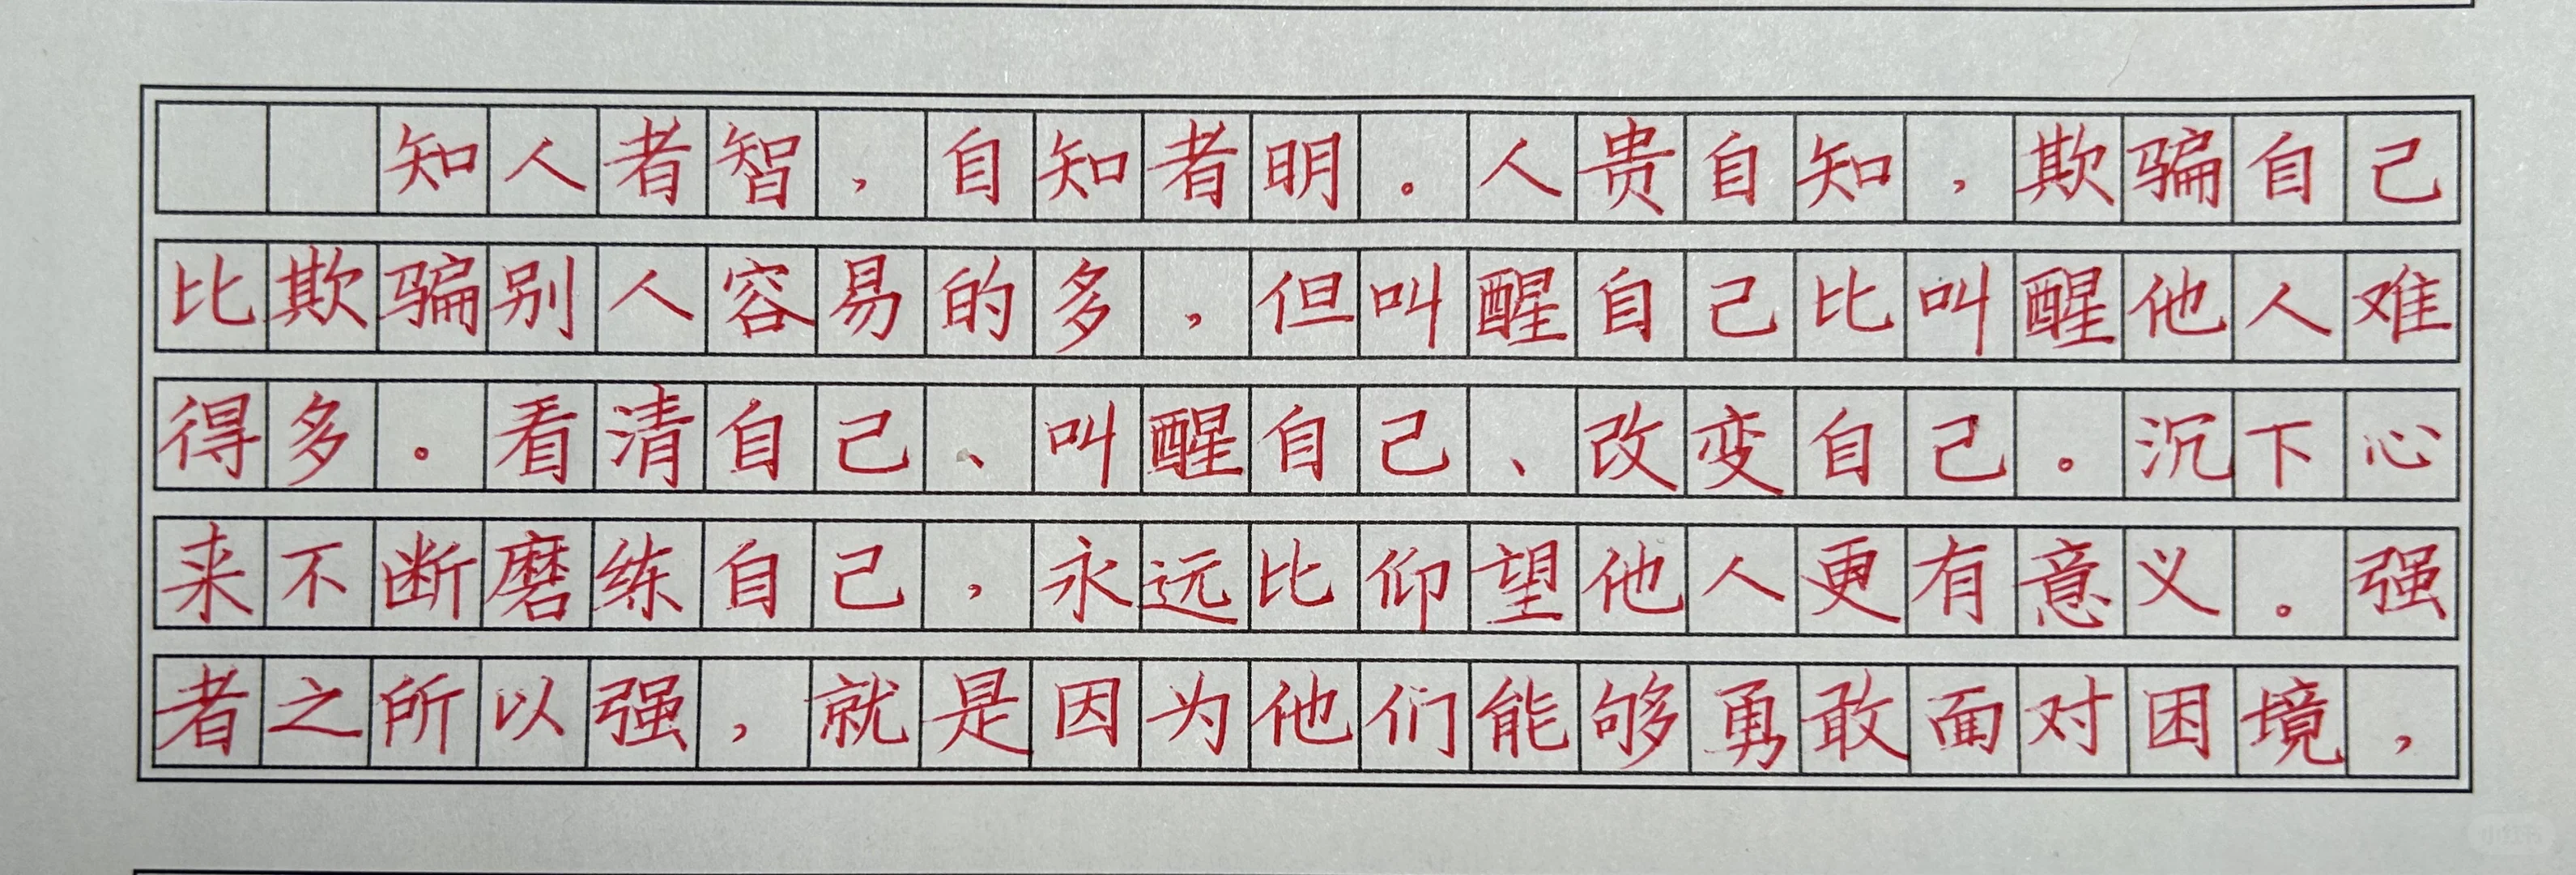 知人者智，自知者明。人贵自知，欺骗自己
比欺骗别人容易的多，但叫醒自己比叫醒他人难
得多。看清自己、叫醒自己、改变自己。沉下心
来不断磨练自己，永远比仰望他人更有意义。强
者之所以强，就是因为他们能够勇敢面对困境，